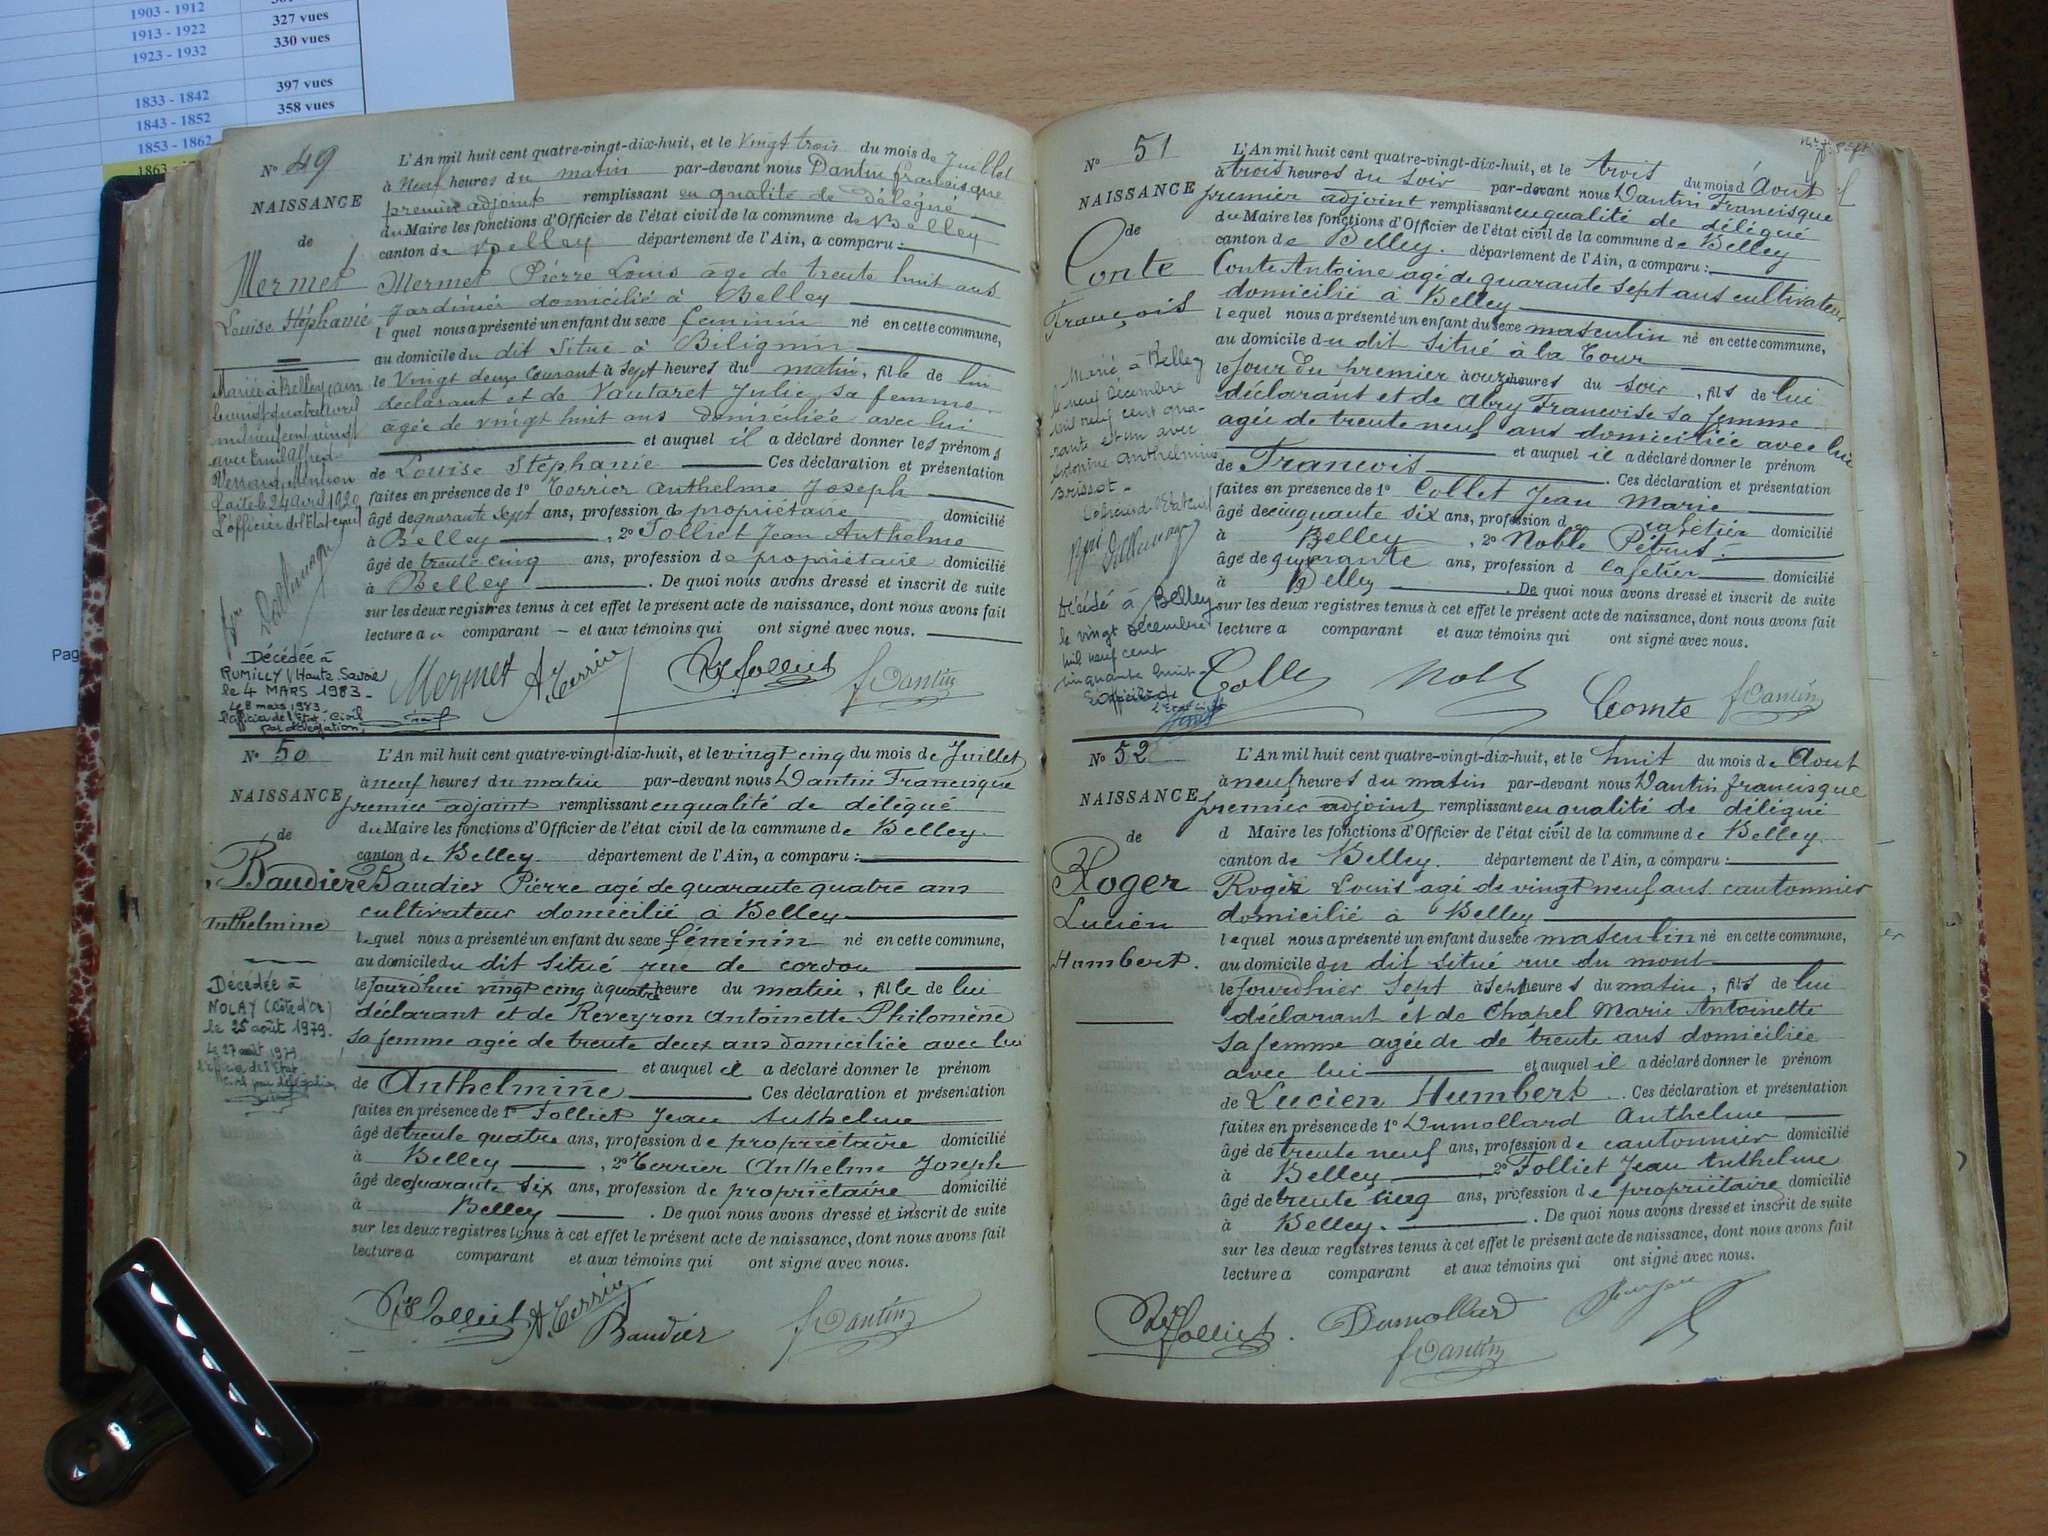 1903 - 1912
1913 - 1922
327 vues
1923 - 1932
330 vues
397 vues
1833 - 1842
358 vues
1843 - 1852
1853 - 1862
1863
Pag
No 49
NAISSANCE
de
Mermet
Louise Stéphanie
Mariée à Belley, Ain
le vingt quatre avril
mil neuf cent vingt
avec Emil Alfred
Fait le 24 avril 1920
L'officier de l'Etat civil
Décédée à
RUMILLY (Haute Savoie
le 4 MARS 1983
le 8 mars 1983
l'officier de l'Etat Civil
par délégation,
L'An mil huit cent quatre-vingt-dix-huit, et le Vingt trois du mois de Juillet
à Neuf heures du matin par-devant nous Dantin francisque
premier adjoint remplissant en qualité de délégué
du Maire les fonctions d'Officier de l'état civil de la commune de Belley
canton de Belley département de l'Ain, a comparu :
Mermet Pierre Louis âgé de trente huit ans
Jardinier domicilié à Belley
lequel nous a présenté un enfant du sexe feminin né en cette commune,
au domicile du dit Situé à Bilignin
le Vingt deux Courant à sept heures du matin, fille de lui
déclarant et de Vautaret Julie sa femme
agée de vingt huit ans domiciliée avec lui
et auquel il a déclaré donner les prénoms
de Louise Stéphanie Ces déclaration et présentation
faites en présence de 1o Terrier Anthelme Joseph
âgé de quarante sept ans, profession de propriétaire domicilié
à Belley , 2o Folliet Jean Anthelme
âgé de trente cinq ans, profession de propriétaire domicilié
à Belley . De quoi nous avons dressé et inscrit de suite
sur les deux registres tenus à cet effet le présent acte de naissance, dont nous avons fait
lecture au comparant et aux témoins qui ont signé avec nous.
Mermet A. Terrier Folliet f Dantin
No 50
NAISSANCE
de
Baudière
Anthelmine
Décédée à
NOLAY (Côte d'Or)
le 25 août 1979.
Le 27 août 1979
l'officier de l'Etat
Civil par délégation
L'An mil huit cent quatre-vingt-dix-huit, et le vingt cinq du mois de Juillet
à neuf heures du matin par-devant nous Dantin Francisque
premier adjoint remplissant en qualité de délégué
du Maire les fonctions d'Officier de l'état civil de la commune de Belley
canton de Belley département de l'Ain, a comparu :
Baudier Pierre agé de quarante quatre ans
cultivateur domicilié à Belley
lequel nous a présenté un enfant du sexe féminin né en cette commune,
au domicile du dit situé rue de cordon
le Jourd'hui vingt cinq à quatre heure du matin, fille de lui
déclarant et de Reveyron Antoinette Philomène
sa femme agée de trente deux ans domiciliée avec lui
et auquel il a déclaré donner le prénom
de Anthelmine Ces déclaration et présentation
faites en présence de 1o Folliet Jean Anthelme
âgé de trente quatre ans, profession de propriétaire domicilié
à Belley , 2o Terrier Anthelme Joseph
âgé de quarante six ans, profession de propriétaire domicilié
à Belley . De quoi nous avons dressé et inscrit de suite
sur les deux registres tenus à cet effet le présent acte de naissance, dont nous avons fait
lecture a comparant et aux témoins qui ont signé avec nous.
Folliet A. Terrier Baudier f Dantin
No 51
NAISSANCE
de
Conte
François
Marié à Belley
le neuf Décembre
mil neuf cent qua-
rante et un avec
Antonine Anthelmine
Brissot -
Décédé à Belley
le vingt Décembre
mil neuf cent
cinquante huit
L'Officier de
l'Etat civil
L'An mil huit cent quatre-vingt-dix-huit, et le trois du mois d'Aout
à trois heures du soir par-devant nous Dantin Francisque
premier adjoint remplissant en qualité de délégué
du Maire les fonctions d'Officier de l'état civil de la commune de Belley
canton de Belley. département de l'Ain, a comparu :
Conte Antoine agé de quarante sept ans cultivateur
domicilié à Belley
lequel nous a présenté un enfant du sexe masculin né en cette commune,
au domicile du dit situé à la Tour
le Jour du premier à onze heures du soir, fils de lui
déclarant et de Abry Francoise sa femme
agée de trente neuf ans domiciliée avec lui
et auquel il a déclaré donner le prénom
de Francois . Ces déclaration et présentation
faites en présence de 1o Collet Jean Marie
âgé de cinquante six ans, profession de cafetier domicilié
à Belley , 2o Noble Pétrus
âgé de quarante ans, profession d cafetier domicilié
à Belley . De quoi nous avons dressé et inscrit de suite
sur les deux registres tenus à cet effet le présent acte de naissance, dont nous avons fait
lecture a comparant et aux témoins qui ont signé avec nous.
Comte f Dantin
No 52
NAISSANCE
de
Roger
Lucien
Humbert.
L'An mil huit cent quatre-vingt-dix-huit, et le huit du mois de Aout
à neuf heures du matin par-devant nous Dantin francisque
premier adjoint remplissant en qualité de délégué
d Maire les fonctions d'Officier de l'état civil de la commune de Belley
canton de Belley. département de l'Ain, a comparu :
Roger Louis agé de vingt neuf ans cautonnier
domicilié à Belley
lequel nous a présenté un enfant du sexe masculin né en cette commune,
au domicile du dit situé rue du mont
le Jourdhier Sept à sept heures du matin, fils de lui
déclarant et de Chapel Marie Antoinette
sa femme agée de de trente ans domiciliée
avec lui et auquel il a déclaré donner le prénom
de Lucien Humbert . Ces déclaration et présentation
faites en présence de 1o Dumollard Anthelme
âgé de trente neuf ans, profession de cautonnier domicilié
à Belley , 2o Folliet Jean Anthelme
âgé de trente cinq ans, profession de propriétaire domicilié
à Belley. . De quoi nous avons dressé et inscrit de suite
sur les deux registres tenus à cet effet le présent acte de naissance, dont nous avons fait
lecture a comparant et aux témoins qui ont signé avec nous.
Folliet. Dumollard
f Dantin